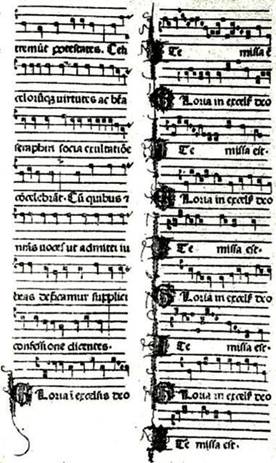 tremūt potestates. Celi
celorūq; virtutes ac bea
seraphin socia exultatiōe
cōcelebrāt. Cū quibus ⁊
nr̄as voces ut admitti iu
beas dep̄camur supplici
confessione dicentes.
Gloria ī excelsis deo
ITe missa ē.
Gloria in excelsꝭ deo
ITe missa est.
Gloria in excelsꝭ deo
ITe missa est.
Gloria in excelsꝭ deo
ITe missa est.
Gloria in excelsꝭ deo
ITe missa est.